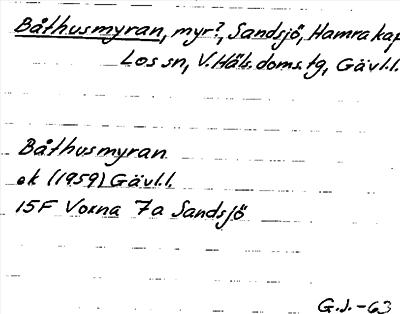 Båthusmyran, myr?, Sandsjö, Hamra kap
Los sn, V. Häls. doms. tg, Gävl.l.
Båthusmyran
ek (1959) Gävl.l.
15F Voxna 7a Sandsjö
G.J.-63